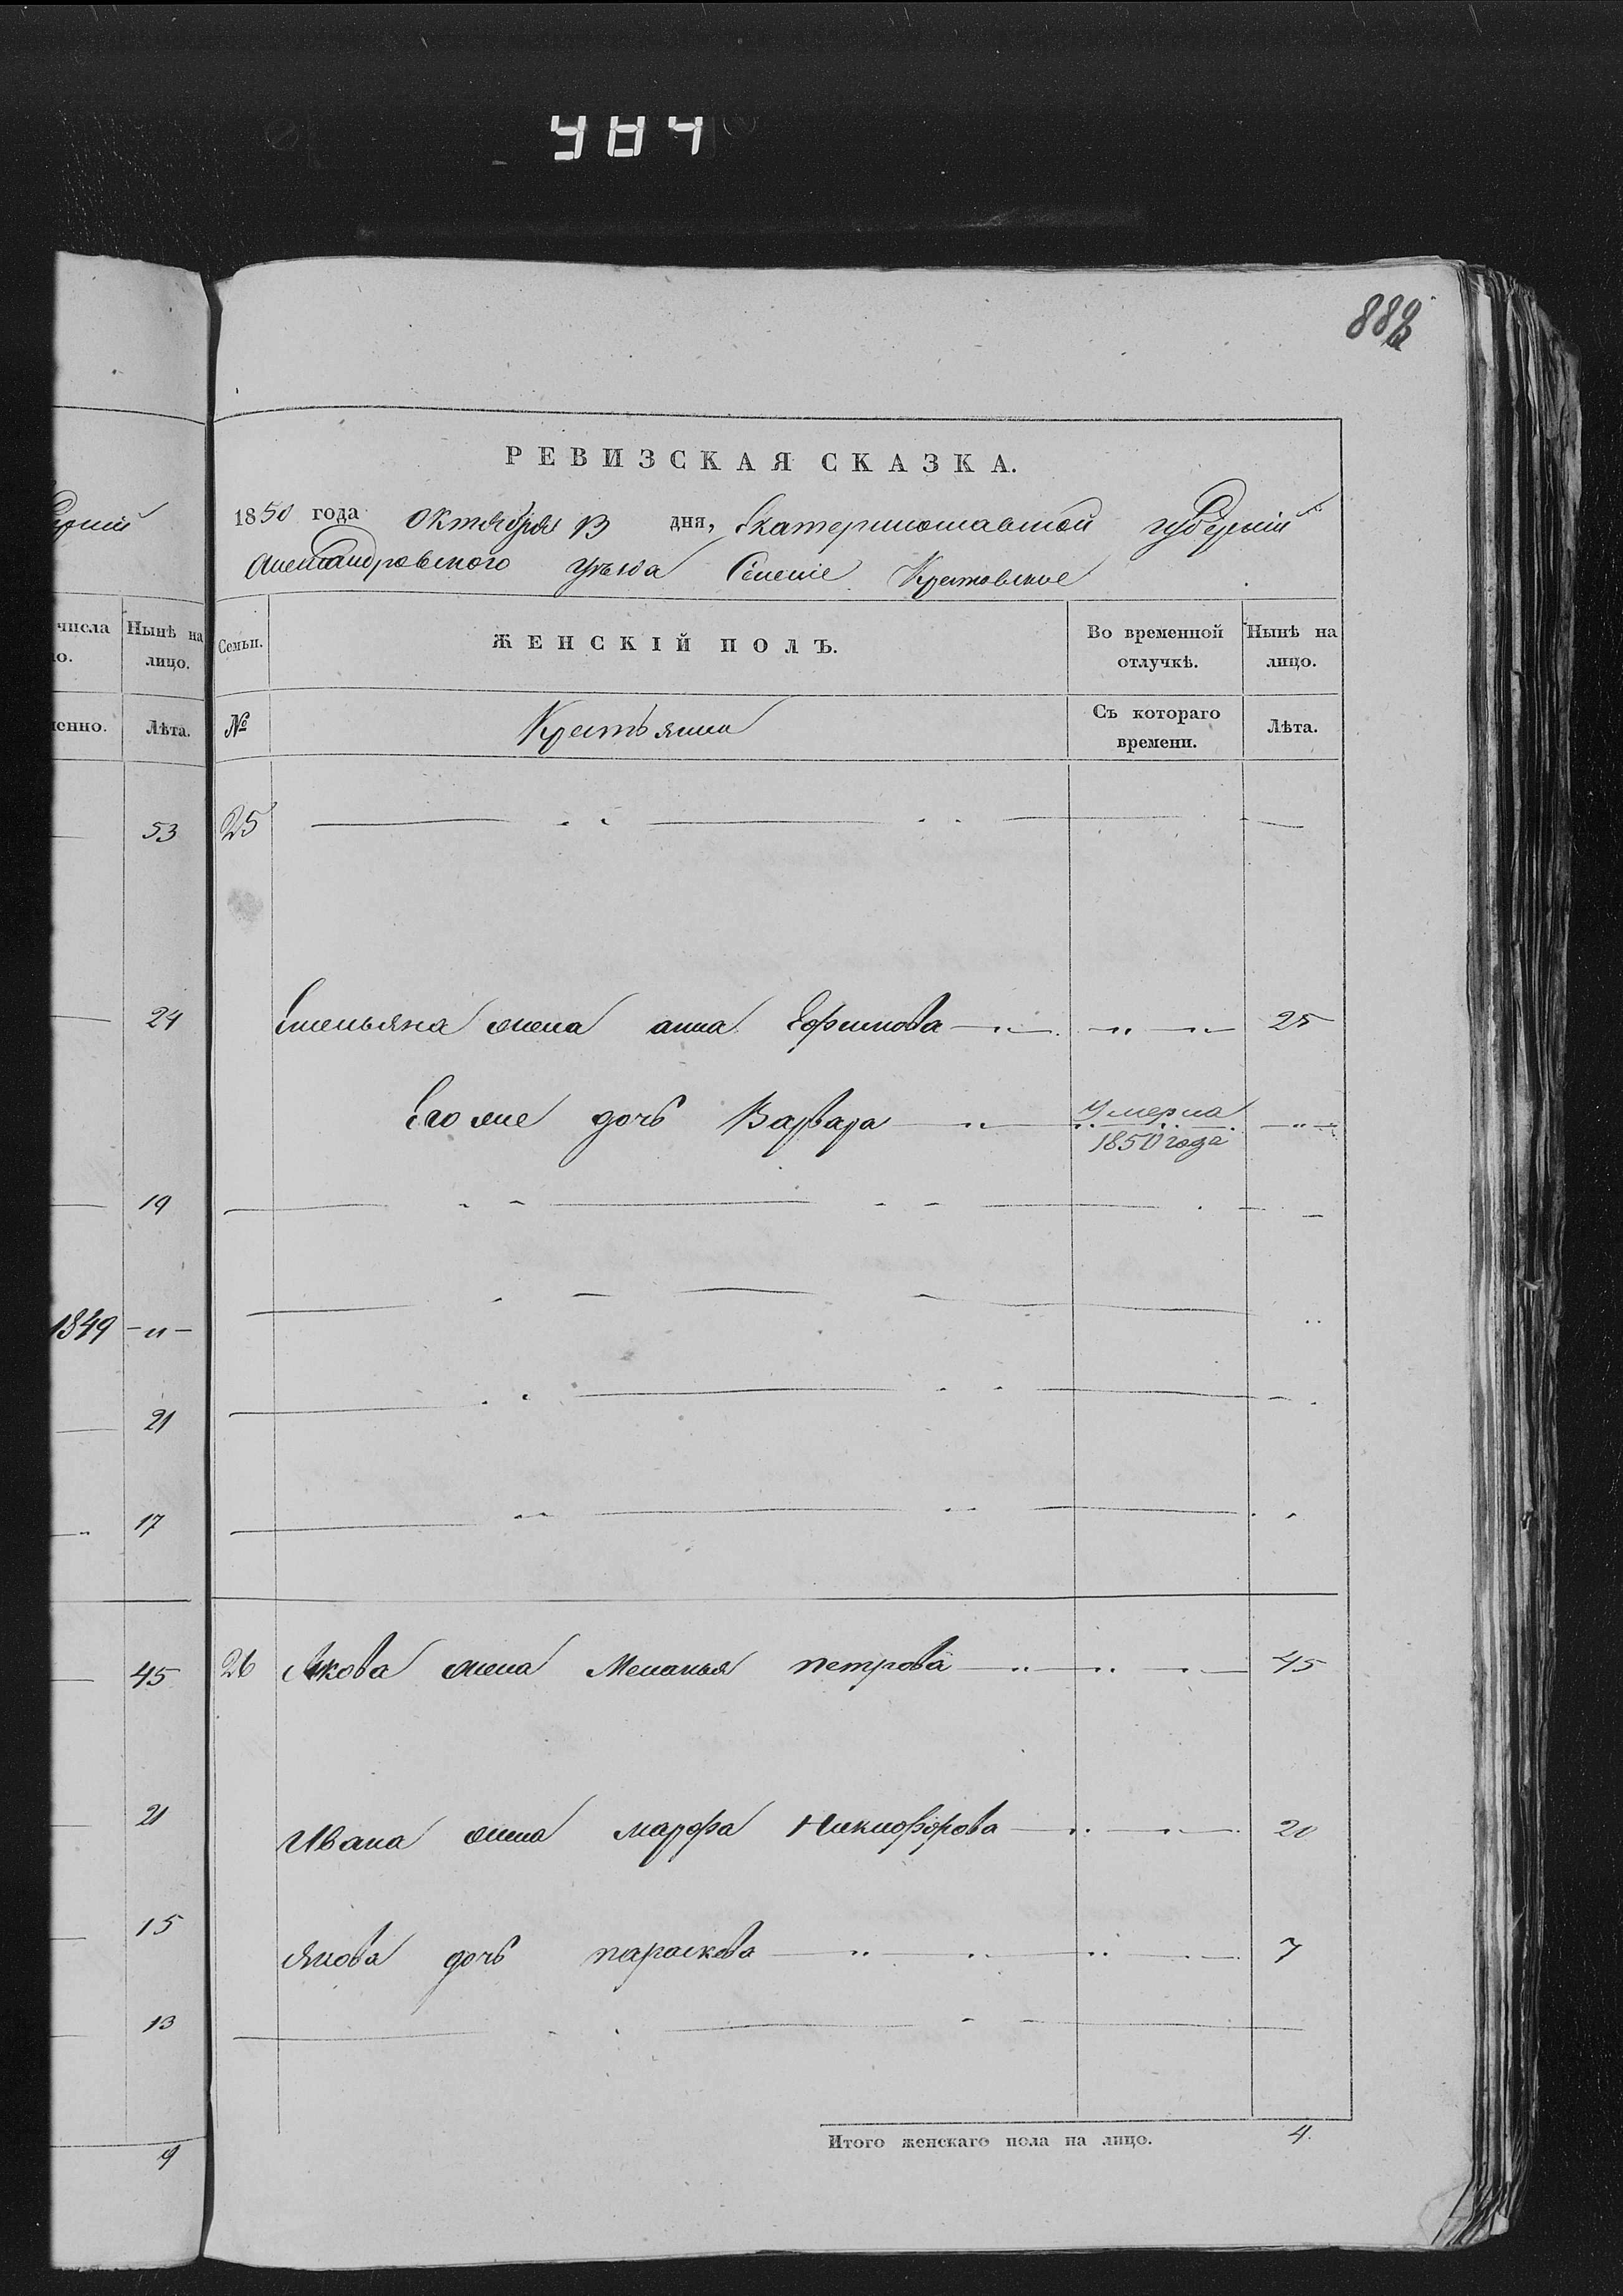 984
882
РЕВИЗСКАЯ СКАЗКА.
1850 года Октября 13 дня, Екатеринославской губерніи
Александровского уезда Селеніе Крестовское
числа
Нынѣ на лицо.
Лѣта.
Семьи.
ЖЕНСКІЙ ПОЛЪ.
Во временной отлучкѣ.
Нынѣ на лицо.
№
Крестьяне
Съ котораго времени.
Лѣта.
53
25
24
Емельяна жена анна Ефимова 25
Его же дочь Варвара Умерла 1850 года
19
1849
21
17
45
26 Якова жена Меланья петрова 45
21
Ивана жена марфа Никифорова 20
15
Якова дочь параскева 7
13
9
Итого женскаго пола на лицо. 4.